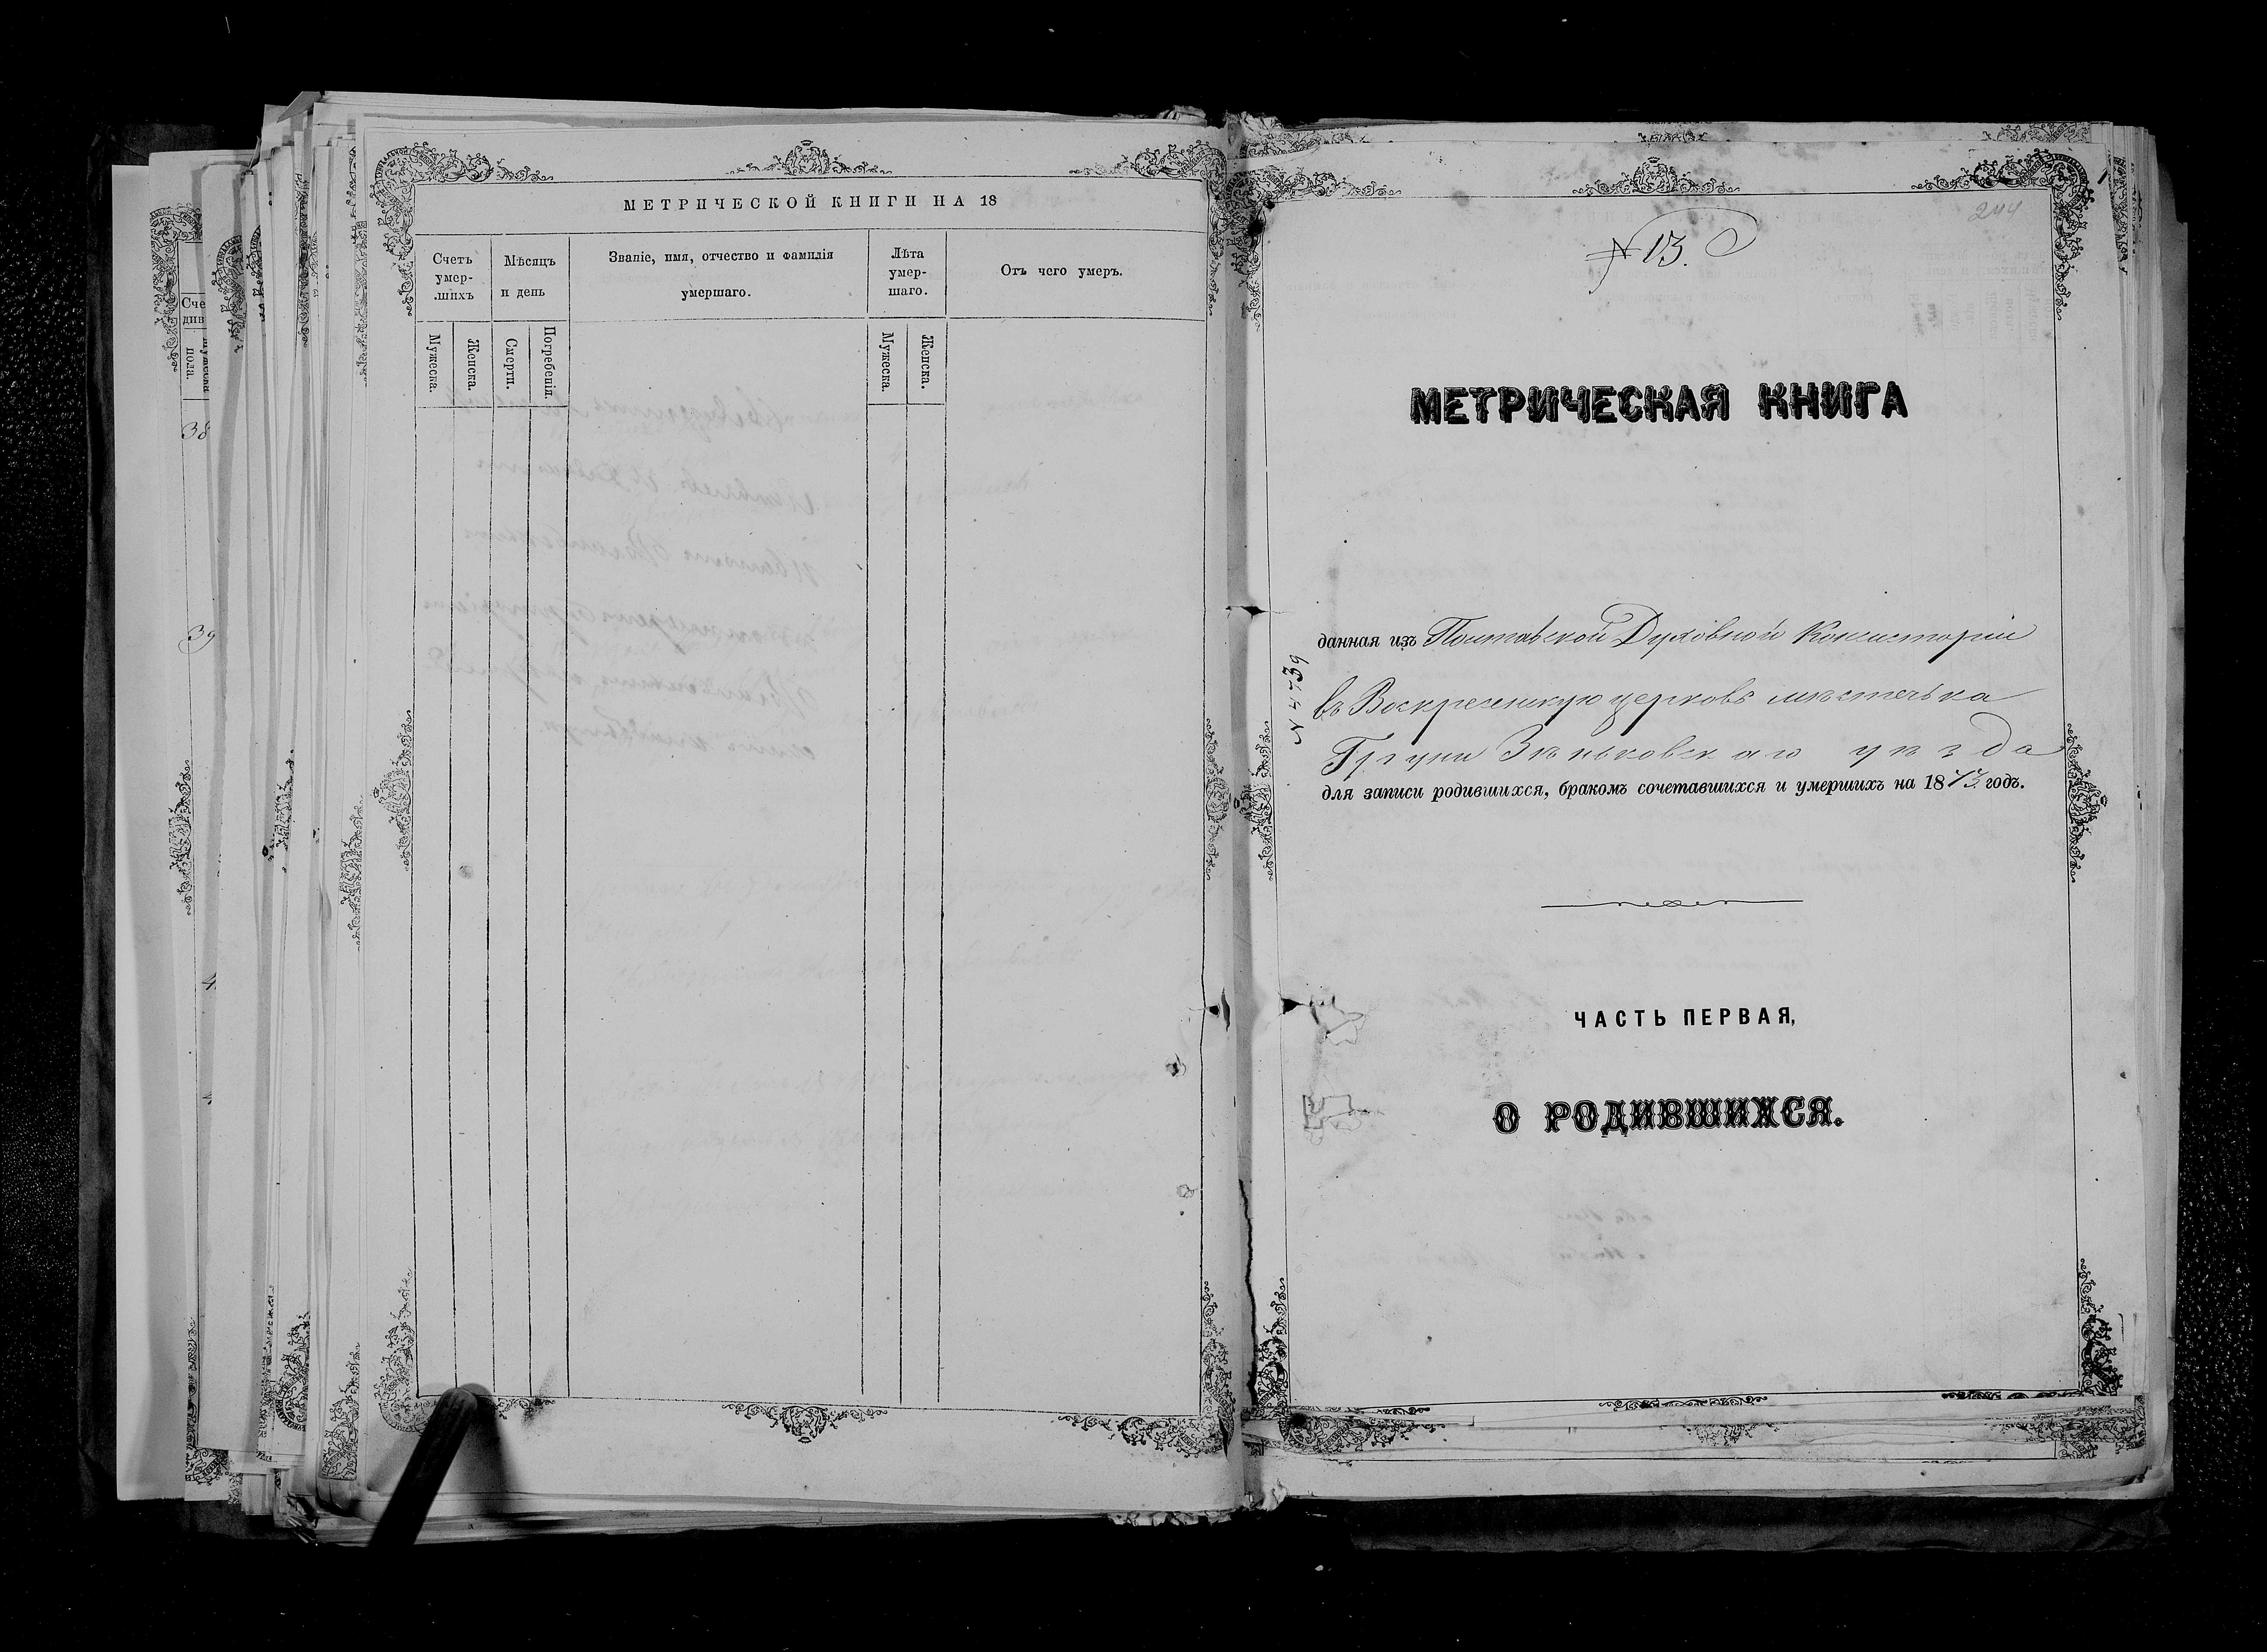 МЕТРИЧЕСКОЙ КНИГИ НА 18
Счетъ умер-шихъ
Мѣсяцъ и день
Званіе, имя, отчество и фамилія умершаго.
Лѣта умер-шаго.
Отъ чего умеръ.
Мужеска.
Женска.
Смерти.
Погребенія.
Мужеска.
Женска.
38
39
244
№ 13.
МЕТРИЧЕСКАЯ КНИГА
данная изъ Полтавской Духовной Консисторіи
въ Воскресенскую церковь мѣстечька
Груни Зѣньковскаго уѣзда
для записи родившихся, бракомъ сочетавшихся и умершихъ на 1873 годъ.
ЧАСТЬ ПЕРВАЯ,
О РОДИВШИХСЯ.